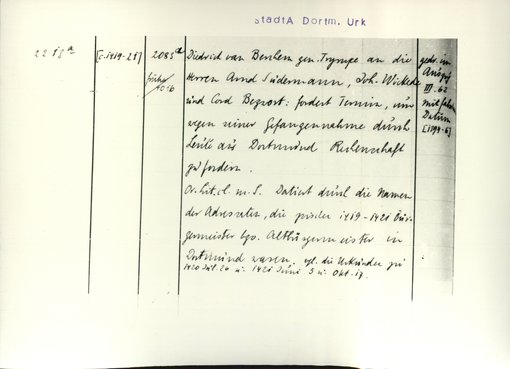 StadtA Dortm. Urk
22 18a
[c. 1419-21]
2085a
früher
1016
Diedrich van Berchem gen. Trympe an die
Herren Arnd Südermann, Joh. Wickede
und Cord Begrost: fordert Termin, um
wegen seiner Gefangennahme durch
Leute aus Dortmund Rechenschaft
zu fordern.
Or. lit. cl. m. S. Datiert durch die Namen
der Adressaten, die zwischen 1419-1421 Bür-
germeister bzw. Altbürgermeister in
Dortmund waren. vgl. die Urkunden zu
1420 Juli 26 u. 1421 Juni 3 u. Okt. 17.
gedr. im
III. 62
mit falschem
Datum